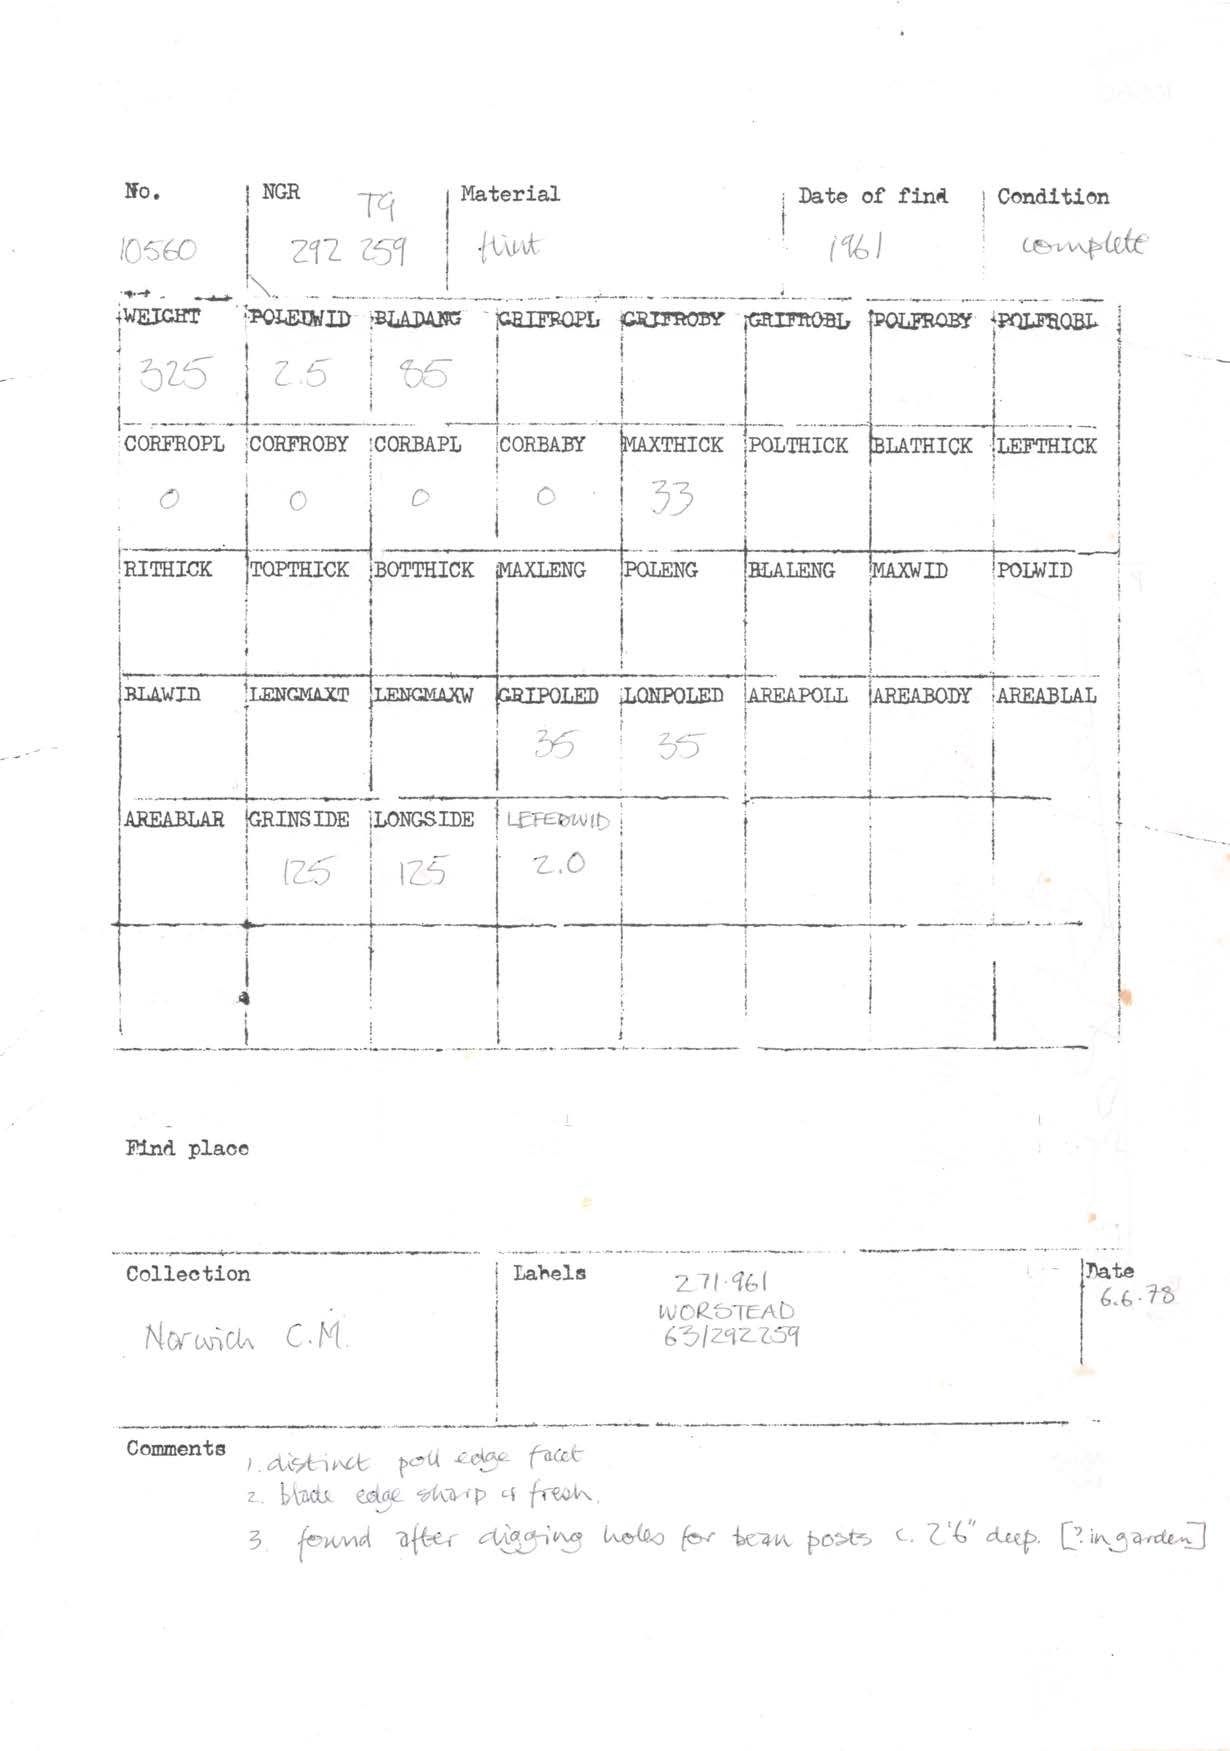 No. NGR TG Material Date of find Condition
10560 292 259 flint 1961 complete
WEIGHT POLEDWID BLADANG GRIFROPL GRIFROBY GRIFROBL POLFROBY POLFROBL
325 2.5 85
CORFROPL CORFROBY CORBAPL CORBABY MAXTHICK POLTHICK BLATHICK LEFTHICK
0 0 0 0 33
RITHICK TOPTHICK BOTTHICK MAXLENG POLENG BLALENG MAXWID POLWID
BLAWID LENGMAXT LENGMAXW GRIPOLED LONPOLED AREAPOLL AREABODY AREABLAL
35 35
AREABLAR GRINSIDE LONGSIDE LEFEDWID
125 125 2.0
Find place
Collection Labels 271.961 Date
WORSTEAD 6.6.78
Norwich C.M. 63/292259
Comments 1. distinct poll edge facet
2. blade edge sharp & fresh.
3. found after digging holes for bean posts c. 2'6" deep. [? in garden]